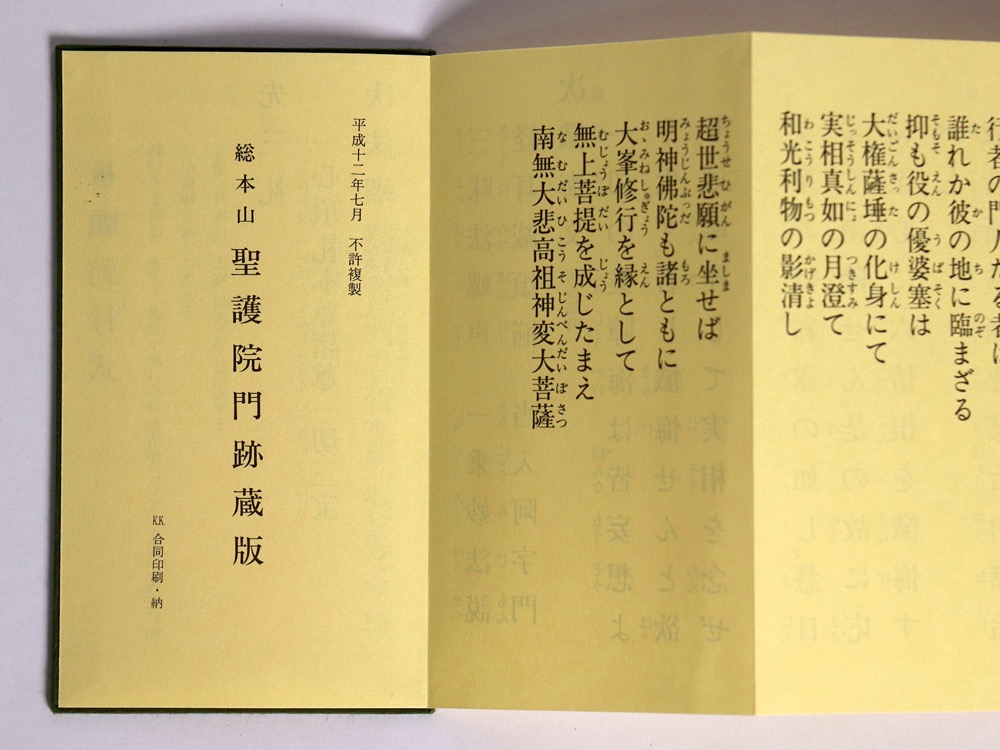 誰れか彼の地に臨まざる
抑も役の優婆塞は
大権薩埵の化身にて
実相真如の月澄て
和光利物の影清し
超世悲願に坐せば
明神佛陀も諸ともに
大峯修行を縁として
無上菩提を成じたまえ
南無大悲高祖神変大菩薩
平成十二年七月 不許複製
総本山 聖護院門跡蔵版
KK 合同印刷・納